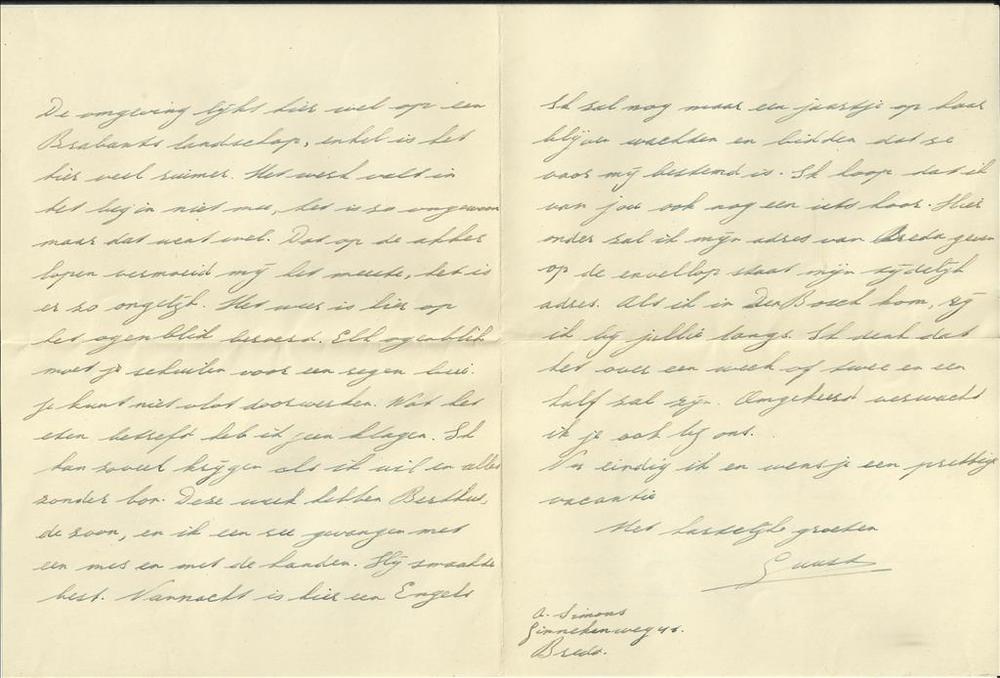 De omgeving lijkt hier wel op een
Brabants landschap, enkel is het
hier veel ruimer. Het werk valt in
het begin niet mee, het is zo ongewoon
maar dat went wel. Dat op de akker
lopen vermoeid mij het meeste, het is
er zo ongelijk. Het weer is hier op
het ogenblik beroerd. Elk ogenblik
moet je schuilen voor een regen bui.
je kunt niet vlot doorwerken. Wat het
eten betreft heb ik geen klagen. Ik
kan zoveel krijgen als ik wil en alles
zonder bon. Deze week hebben Berthus,
de zoon, en ik een ree gevangen met
een mes en met de handen. Hij smaakte
best. Vannacht is hier een Engels
Ik zal nog maar een jaartje op haar
blijven wachten en bidden dat ze
voor mij bestemd is. Ik hoop dat ik
van jou ook nog een iets hoor. Hier
onder zal ik mijn adres van Breda geven
op de envellop staat mijn tijdelijk
adres. Als ik in Den Bosch kom, rij
ik bij jullie langs. Ik denk dat
het over een week of twee en een
half zal zijn. Omgekeerd verwacht
ik je ook bij ons.
Nu eindig ik en wens je een prettige
vacantie
Met hartelijke groeten
Guust
A. Simons
Ginnekenweg
Breda.